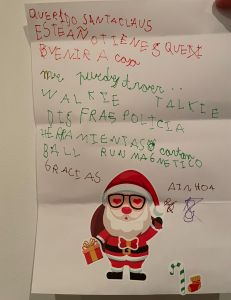 QUERIDO SANTACLAUS
ESTEAÑOTIENES QUE
BVENIR A casa
me puedestraer..
WALKIE TALKIE
DISFRAS POLICIA
HERRAMIENTAS carton
BALL RUN MAGNETICO
GRACIAS
AINHOA